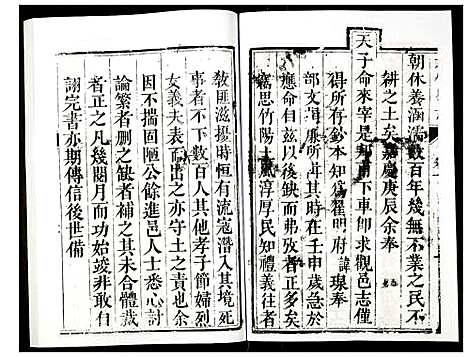 朝休養涵濡數百年幾無不業之民不
耕之土矣嘉慶庚辰余奉
天子命來宰是邦甫下車卽求觀邑志僅
得所存鈔本知爲翟明府諱璟奉
部文所應時在壬申歲急於
應命自茲以缺而弗攷者正多矣
嘉思竹陽土風淳厚民知禮義往者
敎匪滋擾時恒有流寇潛入其境死
事者不下數百人其他孝子節婦烈
女義夫表而出之亦守土之責也余
因不揣固陋公餘進邑人士悉心討
論繁者刪之缺者補之其未合體裁
者正之凡幾閱月而功始竣非敢自
詡完書亦期傳信後世備